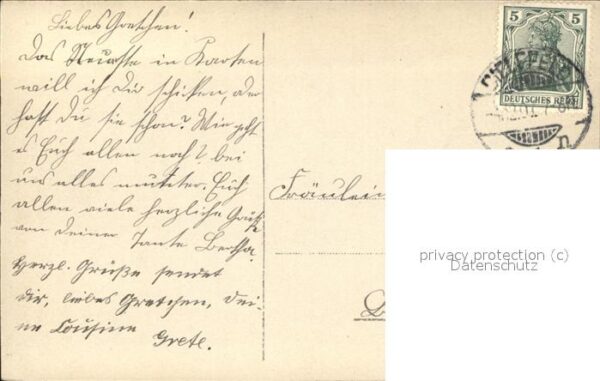 Liebes Gretchen!
Das Neueste in Karten
will ich Dir schicken, oder
hast Du sie schon? Wie geht
es Euch allen noch? bei
uns alles munter. Euch
allen viele herzliche Grüße
von Deiner Tante Bertha.
Herzl. Grüße sendet
dir, liebes Gretchen, dei-
ne Cousine
Grete.
5 5
DEUTSCHES REICH
Fräulein
privacy protection (c)
Datenschutz